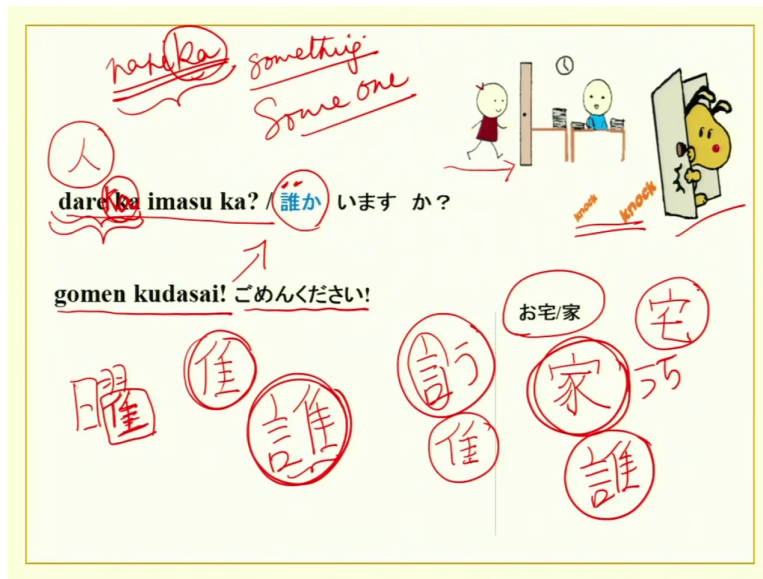 nanika something
Some one
人
dare ka imasu ka? / 誰か います か？
knock knock
gomen kudasai! ごめんください!
お宅/家
宅
曜 隹 誰 言う 隹 家 うち 誰